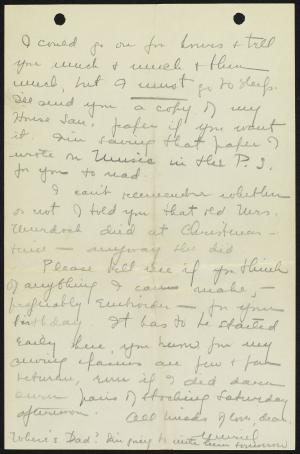 I could go on for hours & tell
you much & much & then
much, but I must go to sleep.
I'll send you a copy of my
House San. paper if you want
it. I'm saving that paper I
wrote on Music in the P. S.
for you to read.
I can't remember whether
or not I told you that old Mrs.
Murdock died at Christmas-
time — anyway she did
Please tell me if you think
of anything I can make, —
preferably embroider — for your
birthday. It has to be started
early here, you know for my
sewing places are few & far
between, even if I did darn
seven pairs of stockings Saturday
afternoon. All kinds of love, dear.
Muriel
Where's Dad? I'm going to write him tomorrow